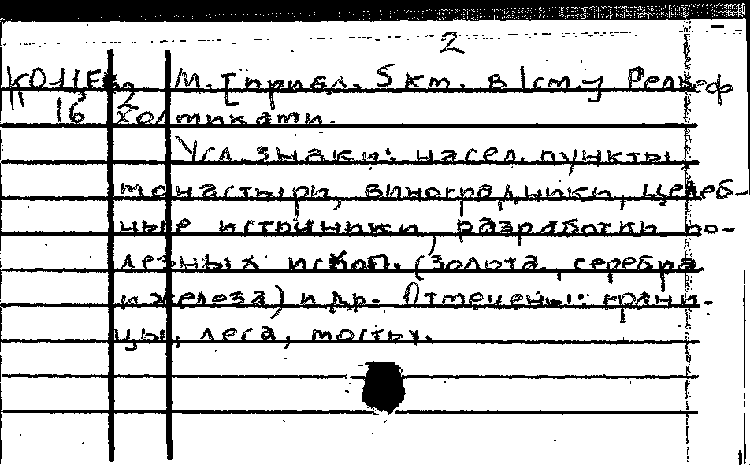 2
М. [прибл. 5 км. в 1 см.] Рельеф
16 2 холмиками.
Усл. знаки: насел. пункты
монастыри, виноградники, целеб-
ные источники, разработки по-
лезных ископ. (золота, серебра
и железа) и др. Отмечены: грани-
цы, леса, мосты.